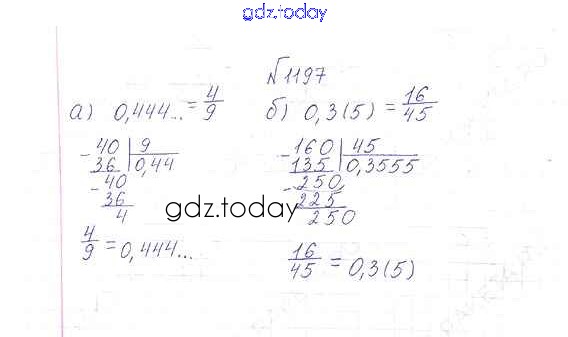 gdz.today
№1197
а) 0,444... = 4/9 б) 0,3(5) = 16/45
- 40 | 9 - 160 | 45
36 | 0,44 135 | 0,3555
- 40 - 250
36 225
4 250
gdz.today
4/9 = 0,444... 16/45 = 0,3(5)